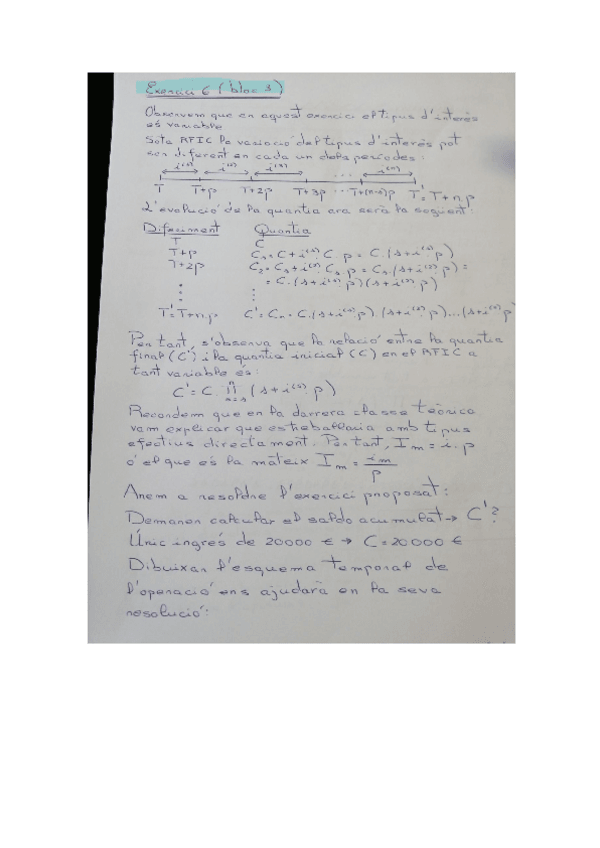 Exercici 6 (bloc 3)
Observem que en aquest exercici el tipus d'interès
és variable
Sota RFIC la variació del tipus d'interès pot
ser diferent en cada un dels períodes:
i⁽¹⁾ i⁽²⁾ i⁽³⁾ i⁽ⁿ⁾
T T+p T+2p T+3p ... T+(n-1)p T'=T+n.p
L'evolució de la quantia ara serà la següent:
Diferiment Quantia
T C
T+p C₁=C+i⁽¹⁾.C.p = C.(1+i⁽¹⁾.p)
T+2p C₂=C₁+i⁽²⁾.C₁.p = C₁.(1+i⁽²⁾.p) =
= C.(1+i⁽¹⁾.p)(1+i⁽²⁾.p)
T'=T+n.p C'=Cₙ=C.(1+i⁽¹⁾.p).(1+i⁽²⁾.p)...(1+i⁽ⁿ⁾.p)
Per tant, s'observa que la relació entre la quantia
final (C') i la quantia inicial (C) en el RFIC a
tant variable és:
Recordem que en la darrera classe teòrica
vam explicar que es treballaria amb tipus
efectius directament. Per tant, Iₘ = i.p
o el que és la mateix Iₘ = iₘ/p
Anem a resoldre l'exercici proposat:
Demanen calcular el saldo acumulat → C'?
Únic ingrés de 20000 € → C=20000 €
Dibuixar l'esquema temporal de
l'operació ens ajudarà en la seva
resolució: